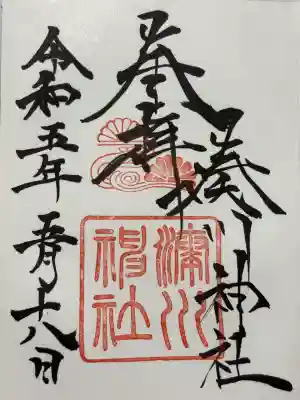 奉拝
湊川神社
湊川
神社
令和五年
五月十八日